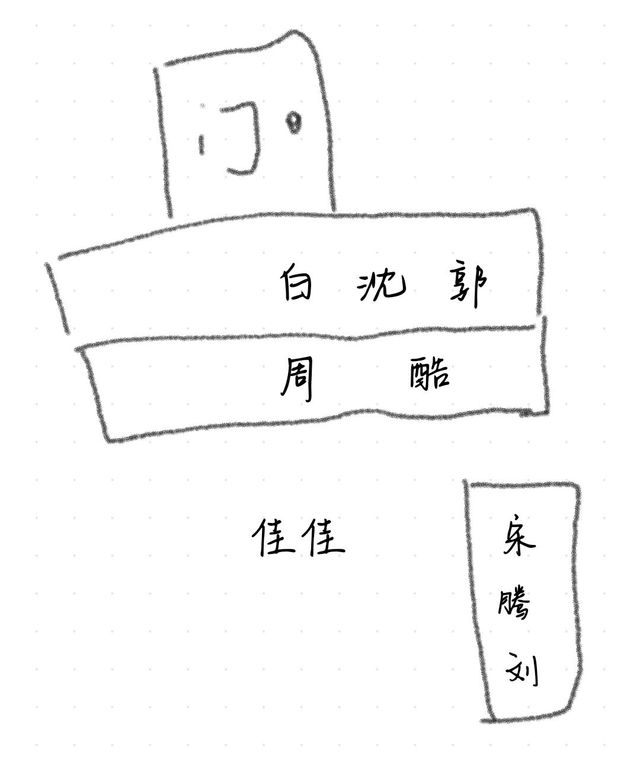 门
白 沈 郭
周 酷
佳佳
宋
腾
刘